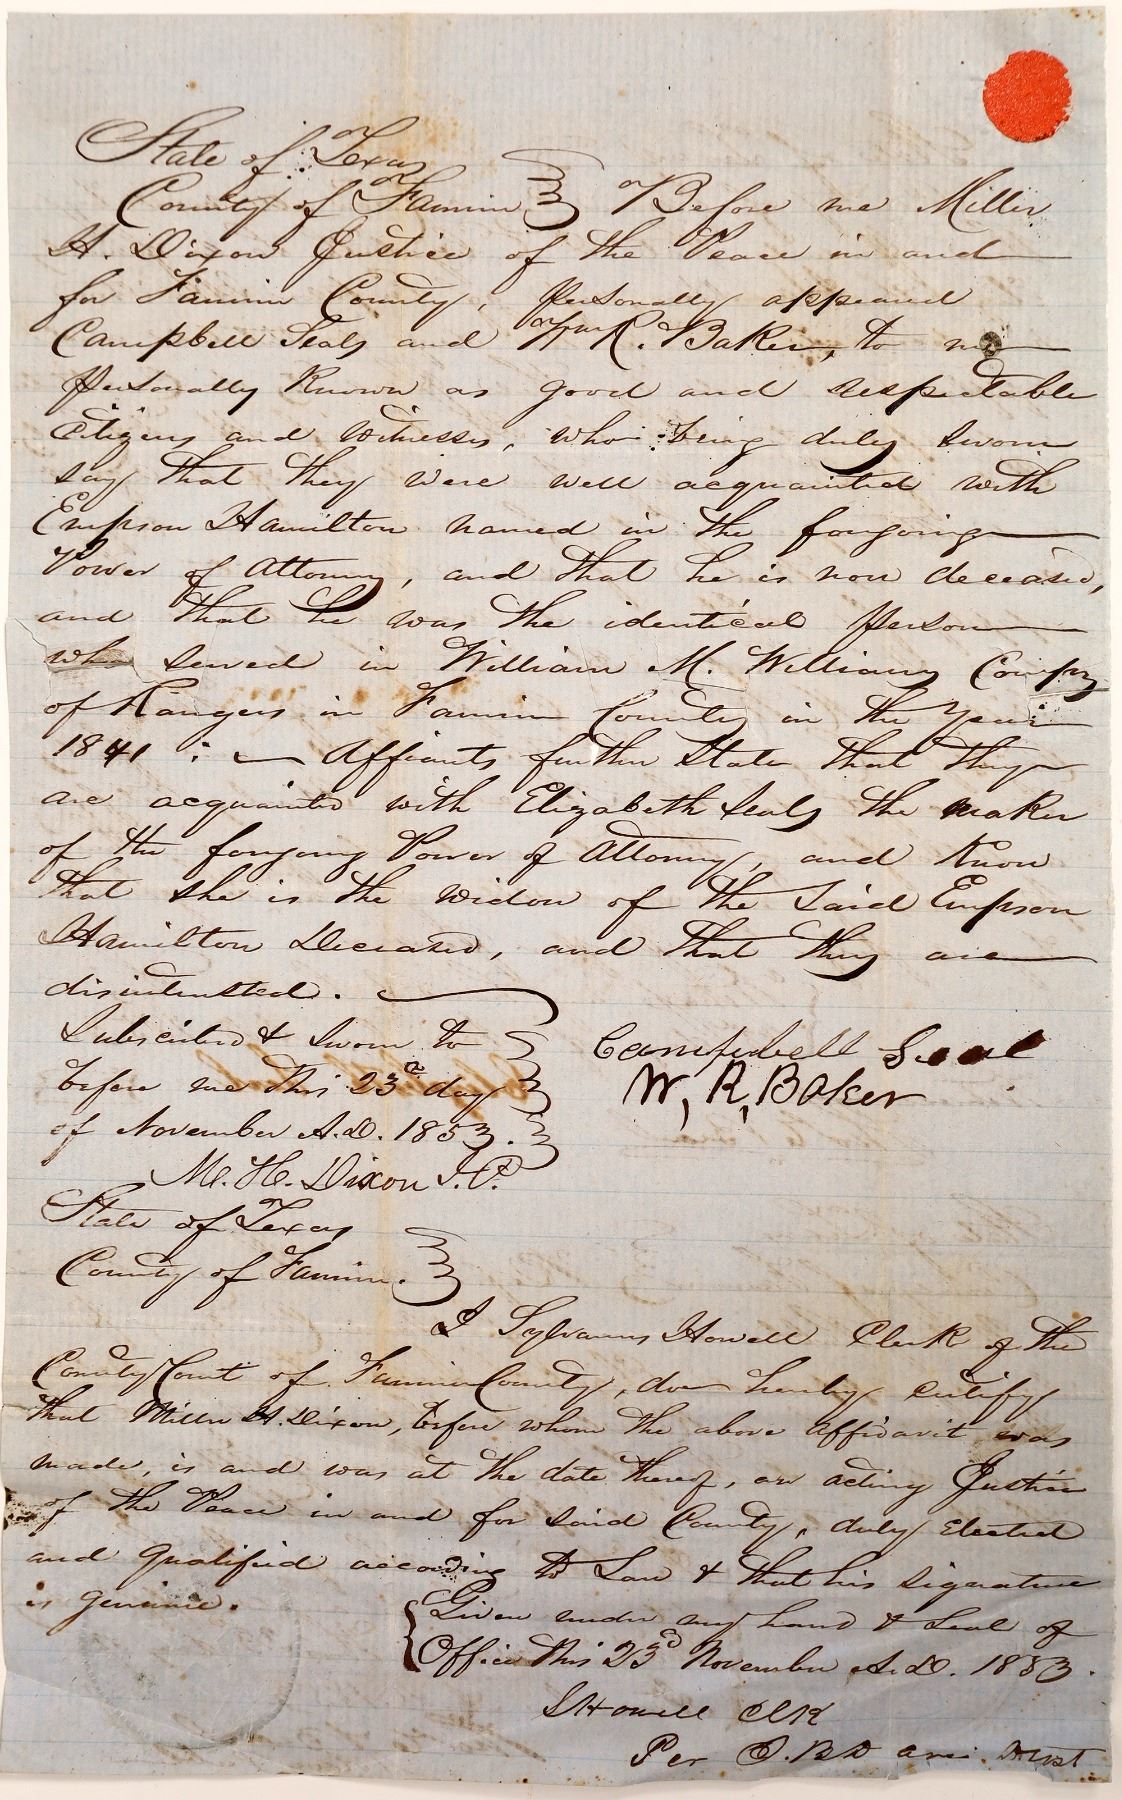 State of Texas
County of Fannin } Before me Miller
H. Dixon Justice of the Peace in and
for Fannin County, personally appeared
Campbell Seals and Wm R. Baker, to me
personally known as good and respectable
Citizens and Witnesses, who being duly sworn
say that they were well acquainted with
Empson Hamilton named in the forgoing
Power of Attorney, and that he is now deceased,
and that he was the identical person
who served in William M. Williams Compy
of Rangers in Fannin County in the year
1841 : Affiants further State that they
are acquainted with Elizabeth Seals the maker
of the forgoing Power of Attorney, and know
that she is the widow of the Said Empson
Hamilton Deceased, and that they are
disinterested.
Subscribed & Sworn to
before me this 23d day
of November A.D. 1853.
Campbell Seal
W, R, Baker
M. H. Dixon J.P.
State of Texas
County of Fannin. }
I Sylvanus Howell Clerk of the
County Court of Fannin County, do hereby certify
that Miller H. Dixon, before whom the above affidavit was
made, is and was at the date thereof, an acting Justice
of the Peace in and for said County, duly Elected
and qualified according to Law & that his signature
is genuine.
{ Given under my hand & Seal of
Office this 23d November A.D. 1853.
S Howell Clk
Per